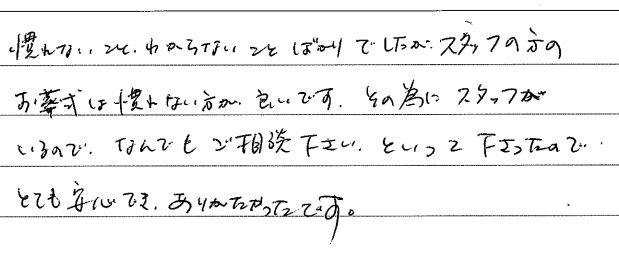 慣れないこと、わからないことばかりでしたが、スタッフの方の
お葬式は慣れない方が良いです、その為にスタッフが
いるので、なんでもご相談下さい、といって下さったので
とても安心でき、ありがたかったです。